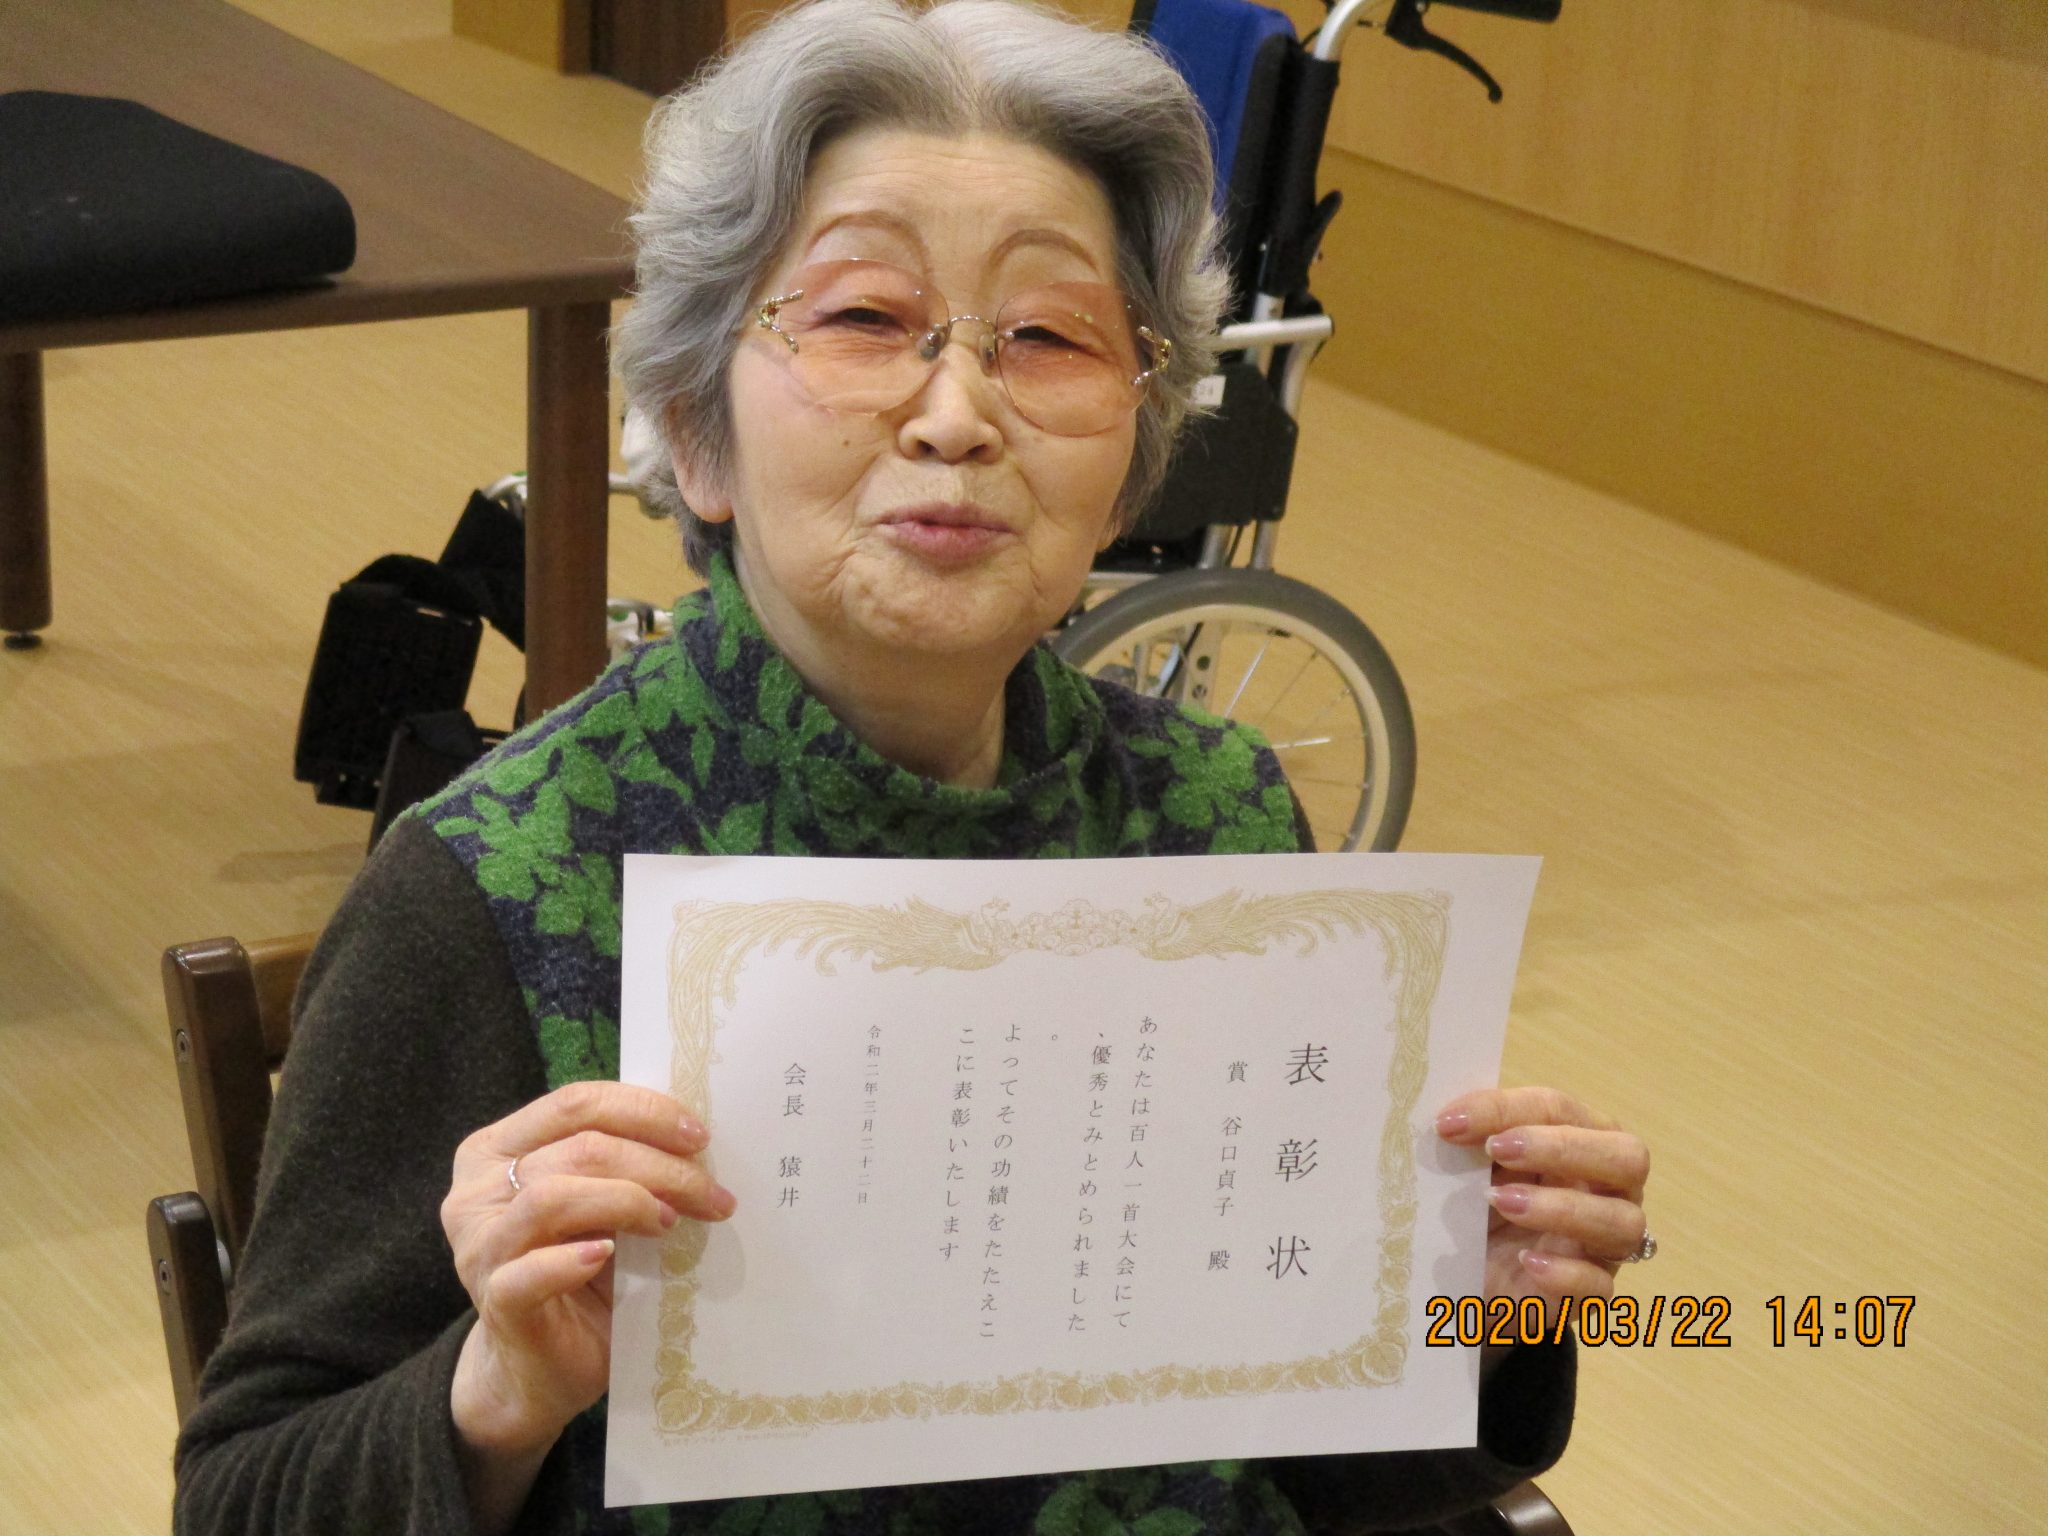 表彰状
賞 谷口貞子 殿
あなたは百人一首大会にて
、優秀とみとめられました
。
よってその功績をたたえこ
こに表彰いたします
令和二年三月二十二日
会長 猿井
2020/03/22 14:07